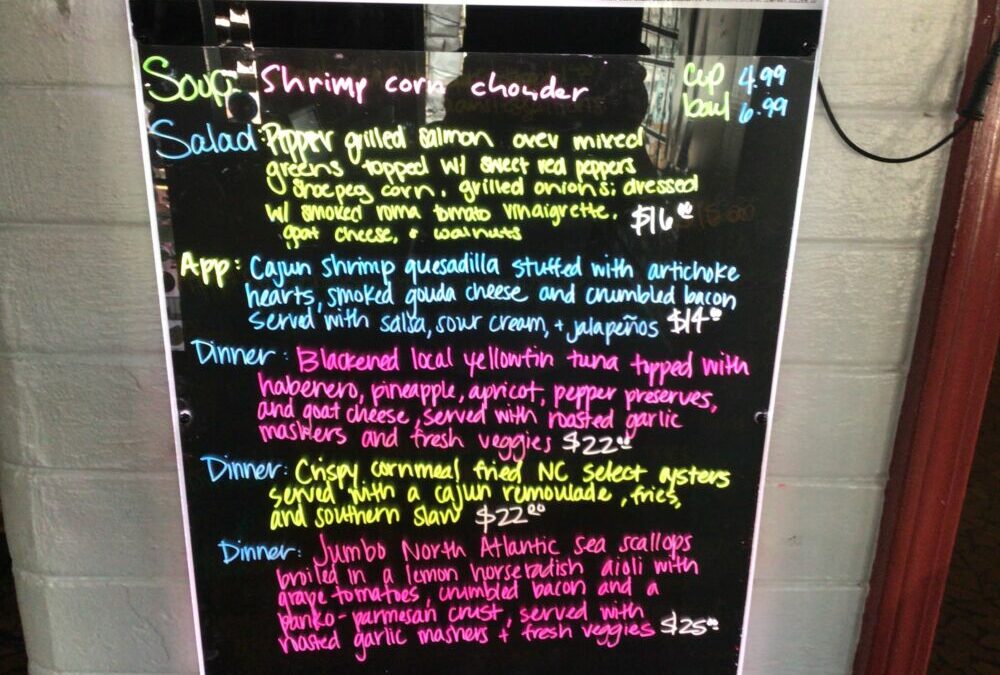 Soup: Shrimp corn chowder cup 4.99
bowl 6.99
Salad: Pepper grilled salmon over mixed
greens topped w/ sweet red peppers
shoepeg corn, grilled onions; dressed
w/ smoked roma tomato vinaigrette, $16.00
goat cheese, + walnuts
App: Cajun shrimp quesadilla stuffed with artichoke
hearts, smoked gouda cheese and crumbled bacon
served with salsa, sour cream, + jalapeños $14.00
Dinner: Blackened local yellowfin tuna topped with
habenero, pineapple, apricot, pepper preserves,
and goat cheese, served with roasted garlic
mashers and fresh veggies $22.00
Dinner: Crispy cornmeal fried NC select oysters
served with a cajun remoulade, fries,
and southern slaw $22.00
Dinner: Jumbo North Atlantic sea scallops
broiled in a lemon horseradish aioli with
grape tomatoes, crumbled bacon and a
panko-parmesan crust, served with
roasted garlic mashers + fresh veggies $25.00